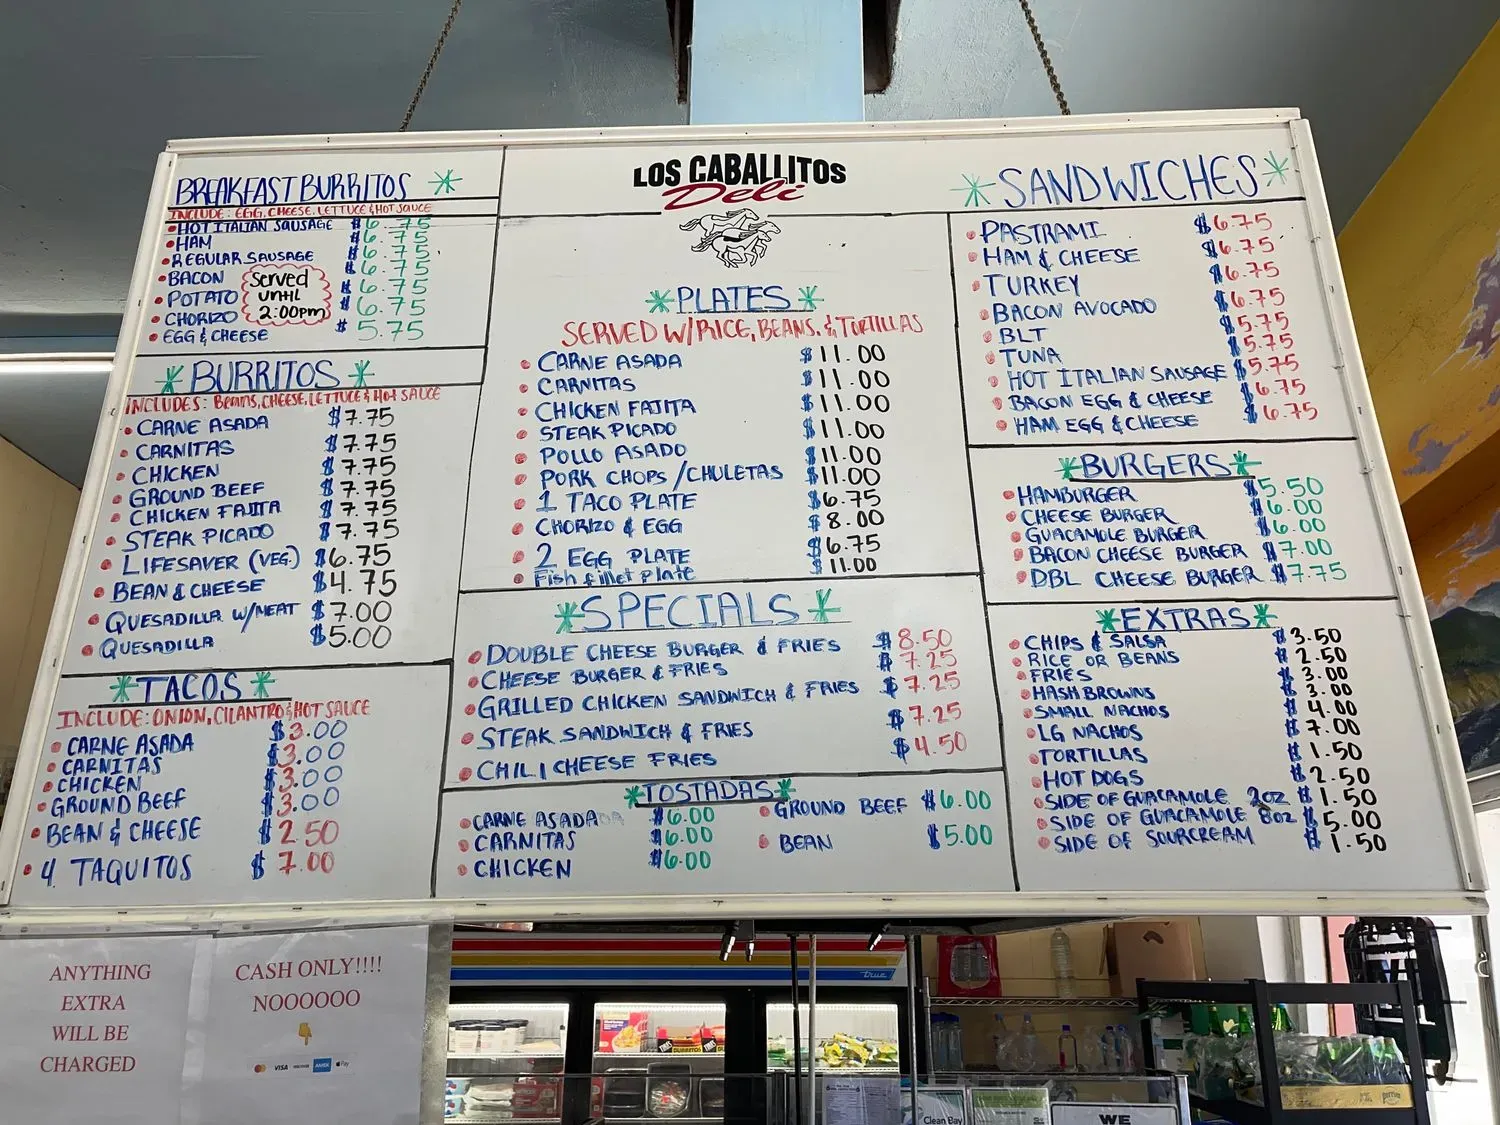 BREAKFAST BURRITOS
INCLUDE: EGG, CHEESE, LETTUCE & HOT SAUCE
HOT ITALIAN SAUSAGE $6.75
HAM $6.75
REGULAR SAUSAGE $6.75
BACON $6.75
POTATO $6.75
CHORIZO $6.75
EGG & CHEESE $5.75
Served
UNTIL
2:00pm
BURRITOS
INCLUDES: BEANS, CHEESE, LETTUCE & HOT SAUCE
CARNE ASADA $7.75
CARNITAS $7.75
CHICKEN $7.75
GROUND BEEF $7.75
CHICKEN FAJITA $7.75
STEAK PICADO $7.75
LIFESAVER (VEG.) $6.75
BEAN & CHEESE $4.75
QUESADILLA W/MEAT $7.00
QUESADILLA $5.00
TACOS
INCLUDE: ONION, CILANTRO & HOT SAUCE
CARNE ASADA $3.00
CARNITAS $3.00
CHICKEN $3.00
GROUND BEEF $3.00
BEAN & CHEESE $2.50
4 TAQUITOS $7.00
LOS CABALLITOS
Deli
PLATES
SERVED W/RICE, BEANS, & TORTILLAS
CARNE ASADA $11.00
CARNITAS $11.00
CHICKEN FAJITA $11.00
STEAK PICADO $11.00
POLLO ASADO $11.00
PORK CHOPS/CHULETAS $11.00
1 TACO PLATE $6.75
CHORIZO & EGG $8.00
2 EGG PLATE $6.75
Fish fillet plate $11.00
SPECIALS
DOUBLE CHEESE BURGER & FRIES $8.50
CHEESE BURGER & FRIES $7.25
GRILLED CHICKEN SANDWICH & FRIES $7.25
STEAK SANDWICH & FRIES $7.25
CHILI CHEESE FRIES $4.50
TOSTADAS
CARNE ASADA $6.00
CARNITAS $6.00
CHICKEN $6.00
GROUND BEEF $6.00
BEAN $5.00
SANDWICHES
PASTRAMI $6.75
HAM & CHEESE $6.75
TURKEY $6.75
BACON AVOCADO $6.75
BLT $5.75
TUNA $5.75
HOT ITALIAN SAUSAGE $5.75
BACON EGG & CHEESE $6.75
HAM EGG & CHEESE $6.75
BURGERS
HAMBURGER $5.50
CHEESE BURGER $6.00
GUACAMOLE BURGER $6.00
BACON CHEESE BURGER $7.00
DBL CHEESE BURGER $7.75
EXTRAS
CHIPS & SALSA $3.50
RICE OR BEANS $2.50
FRIES $3.00
HASH BROWNS $3.00
SMALL NACHOS $4.00
LG NACHOS $7.00
TORTILLAS $1.50
HOT DOGS $2.50
SIDE OF GUACAMOLE 2oz $1.50
SIDE OF GUACAMOLE 8oz $5.00
SIDE OF SOURCREAM $1.50
ANYTHING
EXTRA
WILL BE
CHARGED
CASH ONLY!!!!
NOOOOOO
VISA
AMEX
Pay
true
BURRITOS
Clean Bay
WE